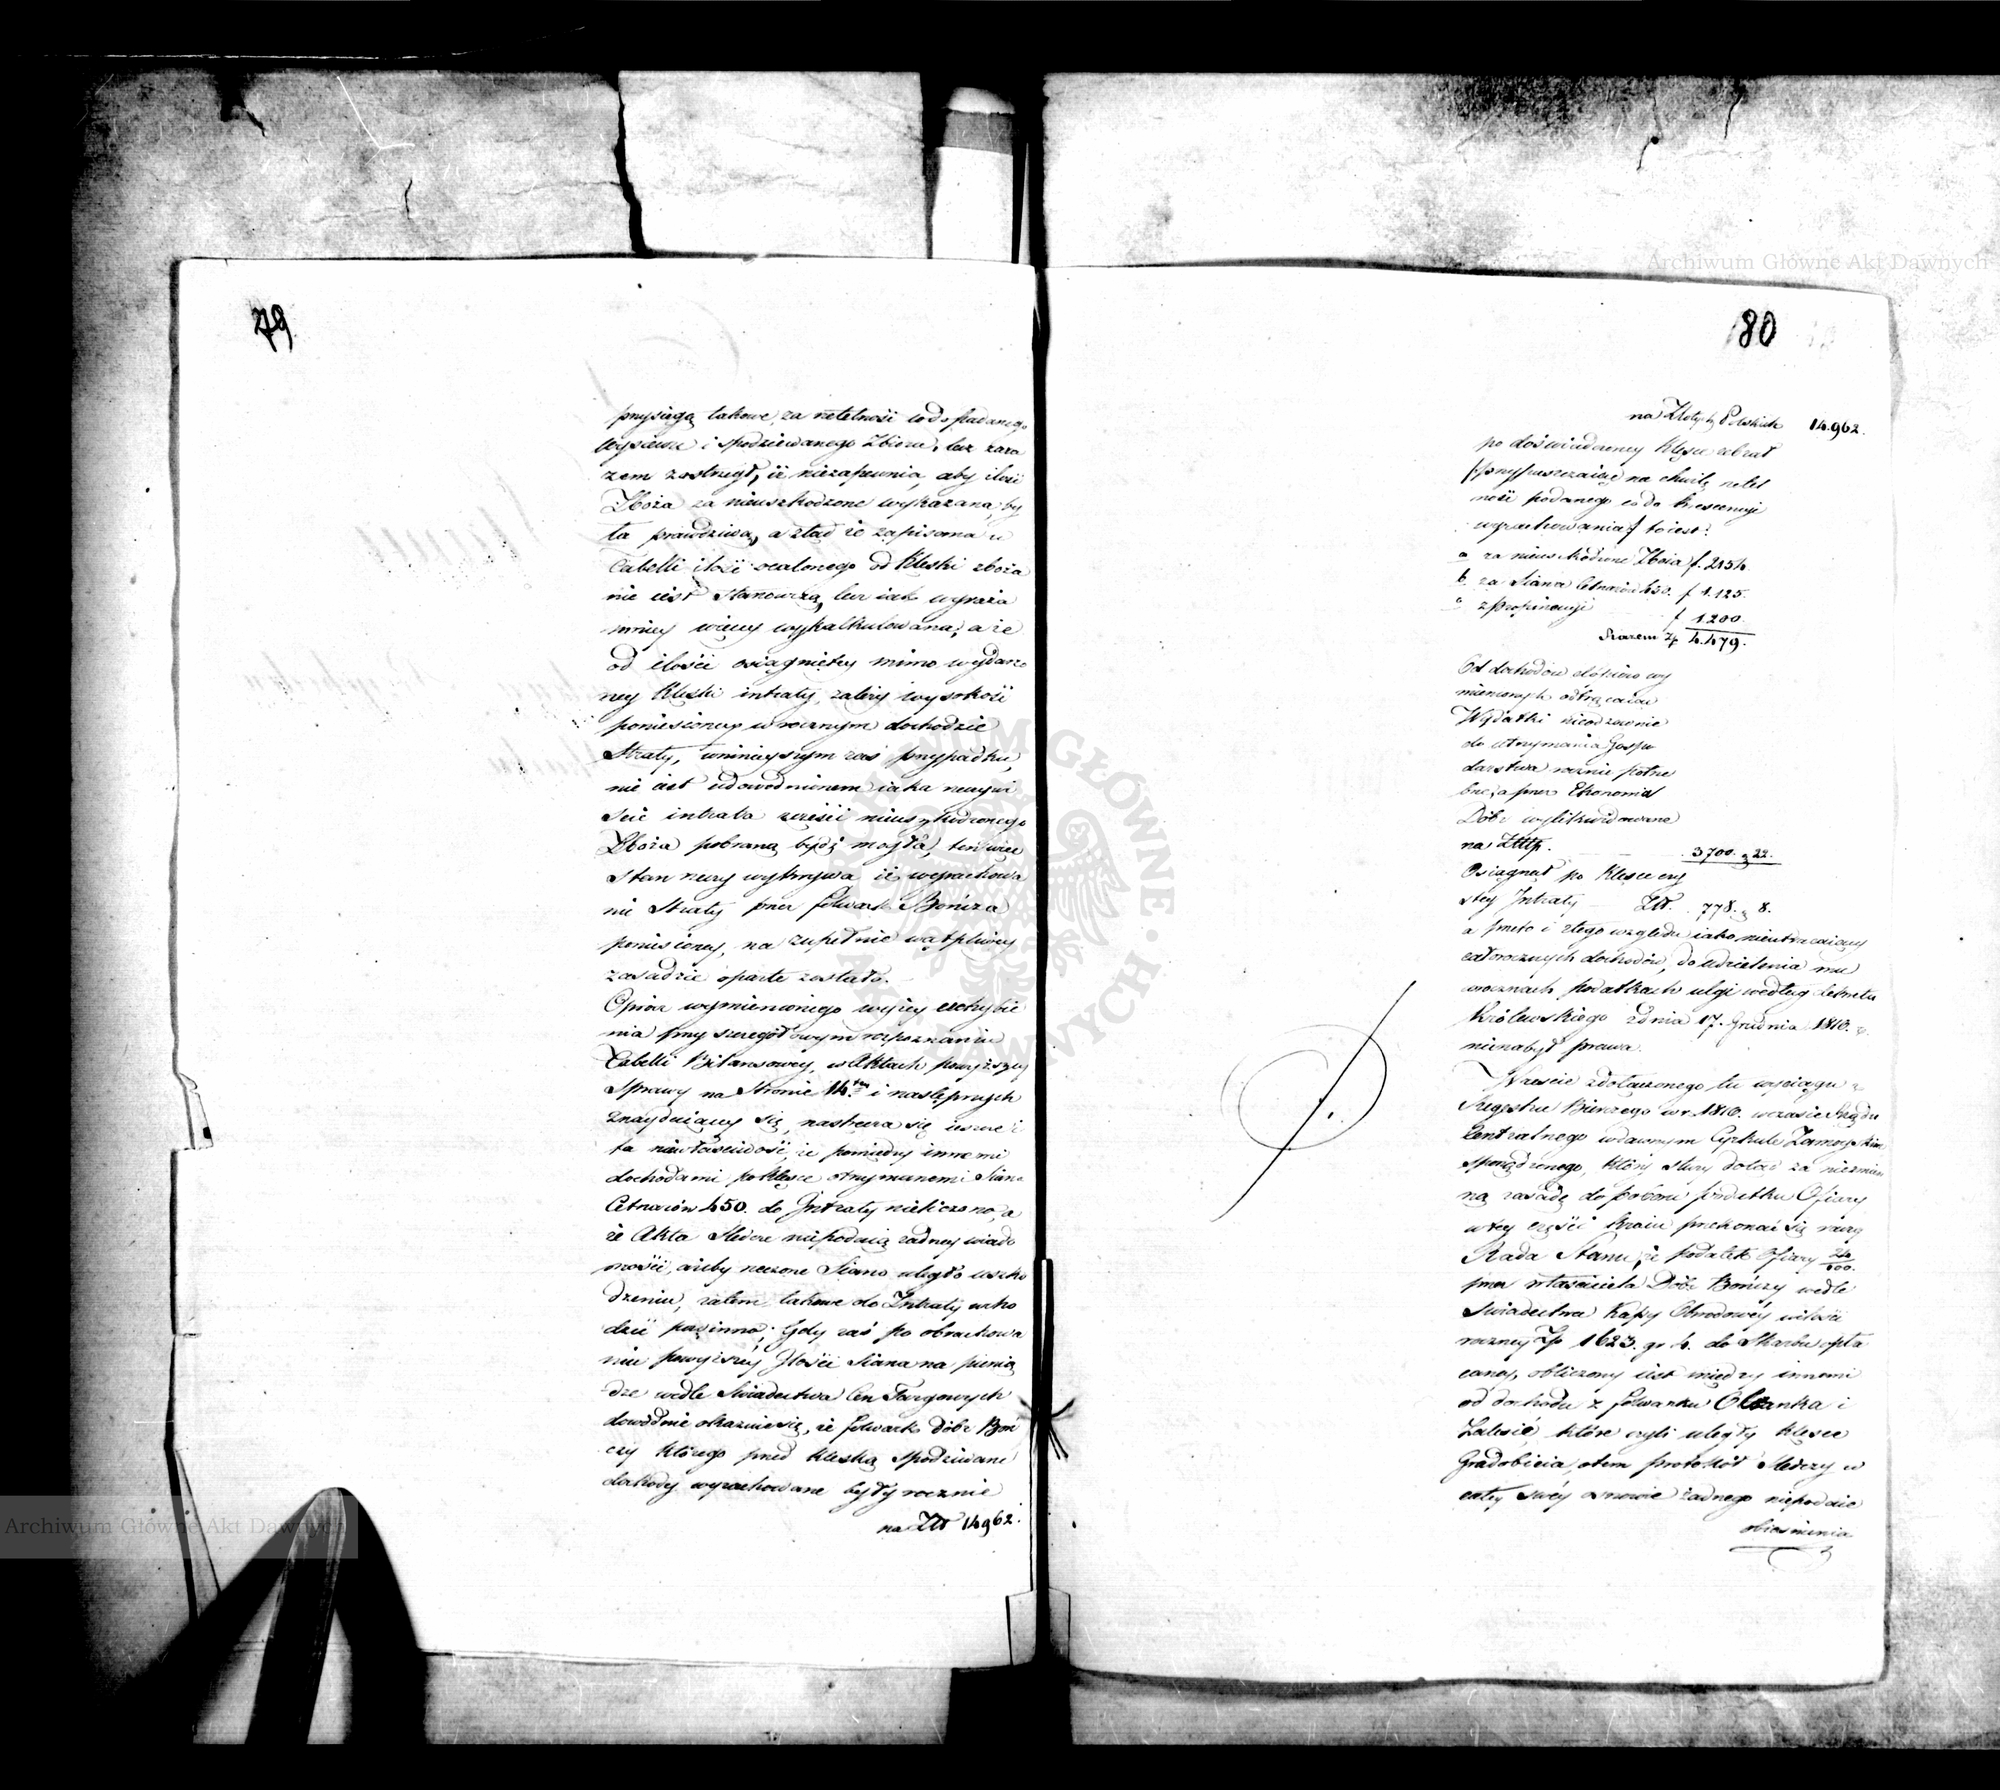 79
przysięgą takowe, za rzetelność co do podanego
wysiewu i spodziewanego Zbioru, lecz zara
zem zastrzegł, iż niezapewnia, aby ilość
Zboża za nieuszkodzone wykazana, by
ła prawdziwą, a ztąd że zapisana w
Tabelli ilość ocalonego od Klęski zboża
nie iest Stanowczą, lecz iak wyraża
mniey więcey wykalkulowana; a że
od ilości osiągniętey mimo wydarzo
ney Klęski intraty, zależy wysokość
poniesioney w rocznym dochodzie
Straty, w ninieyszym zaś przypadku,
nie iest udowodnionem iaka rzeczywi
ście intrata z części nieuszkodzonego
Zboża pobraną bydź mogła, ten więc
Stan rzeczy wykrywa iż wyrachowa
nie Straty przez folwark Bończa
poniesioney, na zupełnie wątpliwey
zasadzie oparte zostało.
Oprócz wymienionego wyżey uchybie
nia przy szczegółowym rozpoznaniu
Tabelli Bilansowey, w Aktach powyższey
Sprawy na Stronie 14tey i następnych
znayduiącey się, nastręcza się ieszcze i
ta niewłaściwość, że pomiędzy innemi
dochodami po Klęsce otrzymanemi Siana
Cetnarów 450. do Intraty nieliczono, a
że Akta śledcze niepodaią żadney wiado
mości, ażeby rzeczone Siano uległo uszko
dzeniu, zatem takowe do Intraty wcho
dzić powinno; Gdy zaś po obrachowa
niu powyższey Ilości Siana na pienią
dze wedle Świadectwa Cen Targowych
dowodnie okazuie się, że folwark Dóbr Boń
czy którego przed Klęską Spodziewane
dochody wyrachowane były rocznie
na Złt 14962.
80
na Złotych Polskich 14.962.
po doświadczoney Klęsce zebrał
/:przypuszczaiąc na chwilę rzetel
ność podanego co do krescencyi
wyrachowania:/ to iest:
a za nieuszkodzone Zboża f. 2154.
b. za Siana Cetnarów 450. f 1.125.
c z Propinacyi f 1200.
Razem Zł 4.479.
Od dochodów dopiero wy
mienionych odtrącaiąc
Wydatki nieodzownie
do utrzymania Gospo
darstwa rocznie potrze
bne, a przez Ekonomat
Dóbr wylikwidowane
na Złllp. 3700. g 22.
Osiągnął po Klęsce czy
stey Intraty Złt. 778. g 8.
a przeto i z tego względu iako nieutracaiący
całorocznych dochodów, do udzielenia mu
w rocznych podatkach ulgi według dekretu
Królewskiego z dnia 17. Grudnia 1810. r.
nienabył prawa.
Wreście z dołączonego tu wyciągu z
Regestru Bierczego w r. 1810. w czasie Rządu
Centralnego w dawnym Cyrkule Zamoyskim
sporządzonego, który służy dotąd za niezmien
ną zasadę do poboru podatku Ofiary
w tey części Kraiu przekonać się raczy
Rada Stanu, że podatek Ofiary 24/100.
przez właściciela Dóbr Bończy wedle
Świadectwa Kassy Obwodowéy w ilości
roczney Złp 1623. gr 4. do Skarbu opła
caney, obliczony iest między innemi
od dochodu z folwarku Olszanka i
Zalesie, które czyli uległy klęsce
Gradobicia, o tem protokół śledczy w
całey swéy osnowie żadnego niepodaie
obiaśnienia